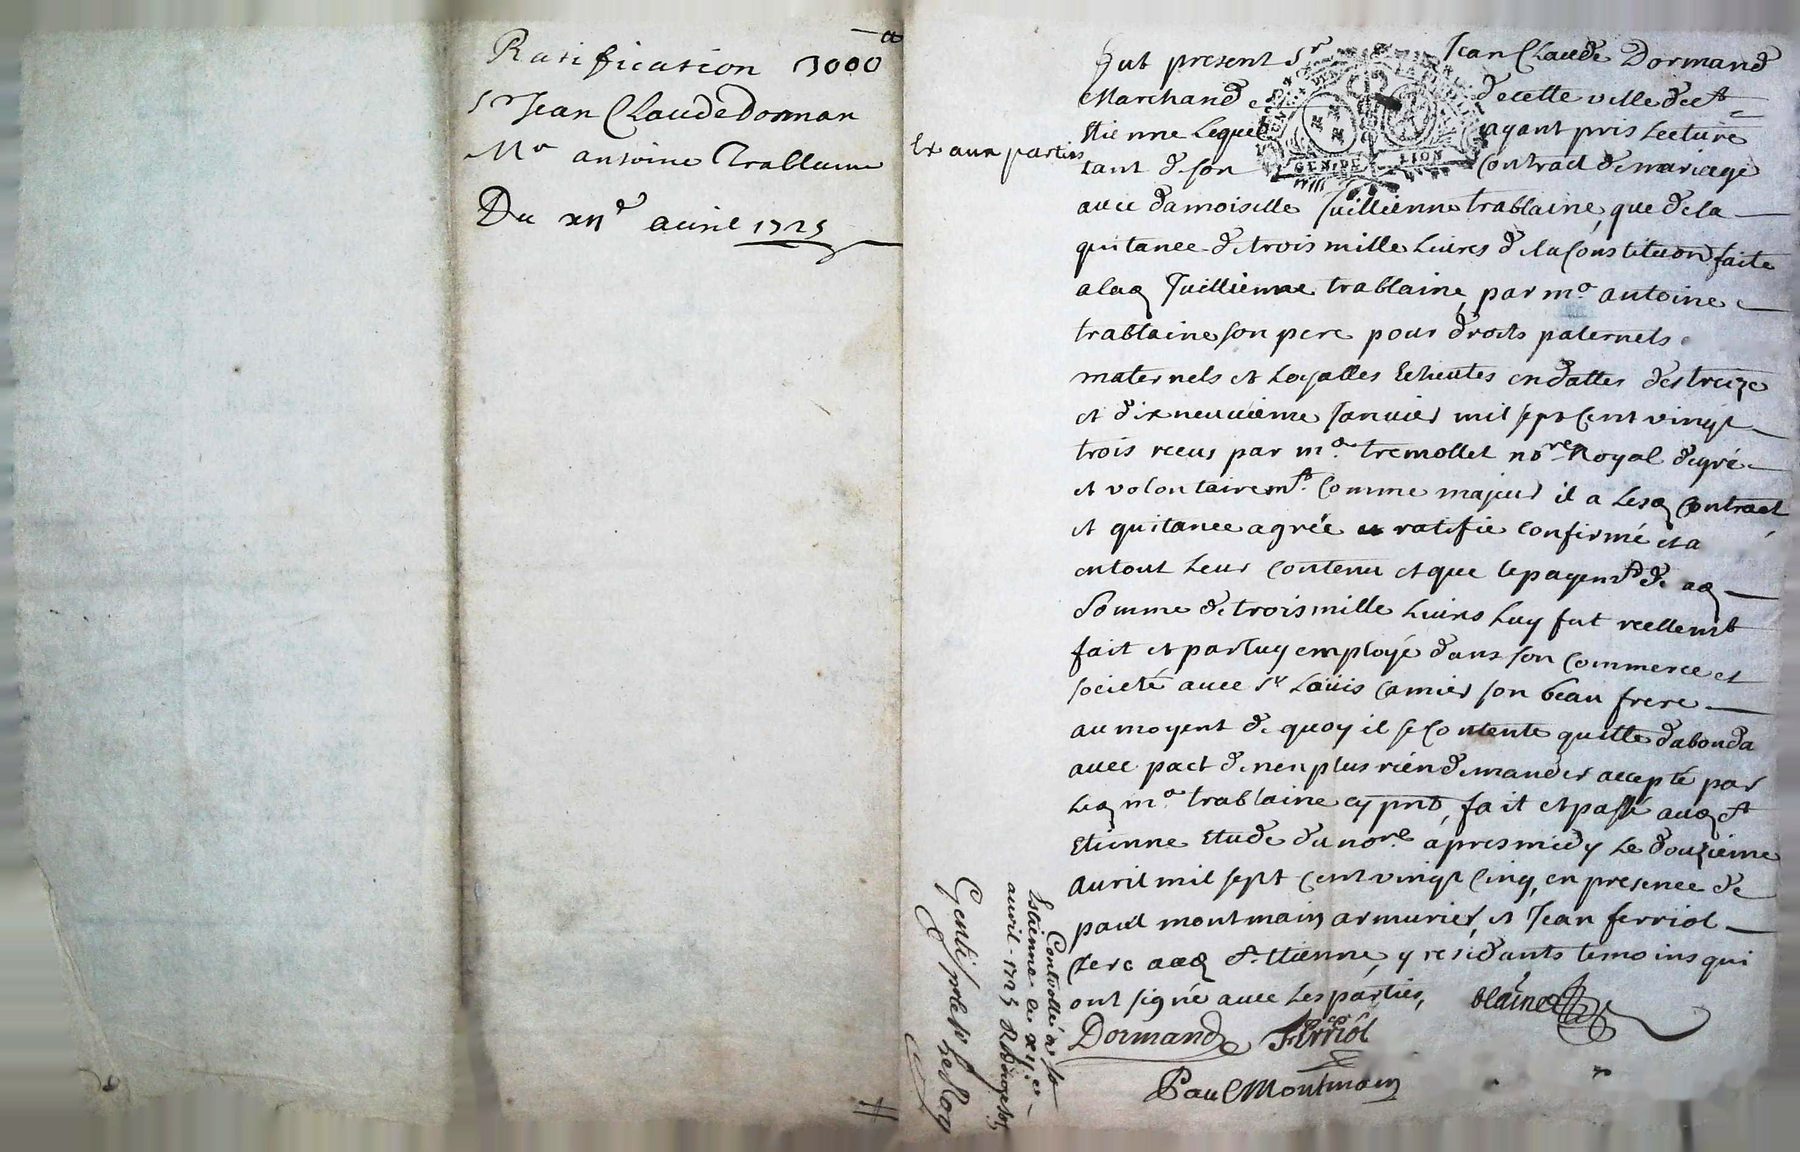 Ratification 3000 tt
Sr Jean Claude Dorman
Me antoine Trablaine
Du xii e avril 1725
Ex aux parties
Fut present Sr Jean Claude Dormand
Marchand de cette ville de St
Etienne Lequel ayant pris Lecture
tant de son Contract de mariage
avec damoiselle Juillienne trablaine, que de la
quitance de trois mille Livres de la Constitution faite
a lad Juillienne trablaine, par me antoine
trablaine son pere pour droits paternels
maternels et Loyalles Echeutes en dattes des treize
et dix neuvieme Janvier mil sept Cent vingt
trois receus par me tremollet nore Royal de gré
et volontairemt. Comme majeur il a Lesd Contract
et quitance agrée ratifié confirmé et a
en tout Leur Contenu et que le payemt de ad
Somme de trois mille Livres Luy fut reellemt
fait et par luy employé dans son Commerce et
societé avec Sr Loüis Camier son beau frere
au moyent de quoy il se Contente quitte d'abonda
avec pact de n'en plus rien demander accepté par
Led me trablaine cy pnt, fait et passé aud St
Etienne Etude du nore apres midy Le douzieme
Avril mil sept Cent vingt Cinq, en presence de
paul montmain armurier, et Jean ferriol
Clerc aud St. Etienne, y residants temoins qui
ont signé avec Les parties,
blaine
Dormand Ferriol
Paul Montmain
Controllé a St
Estienne le xii e
avril 1725 R
GEN DE LION